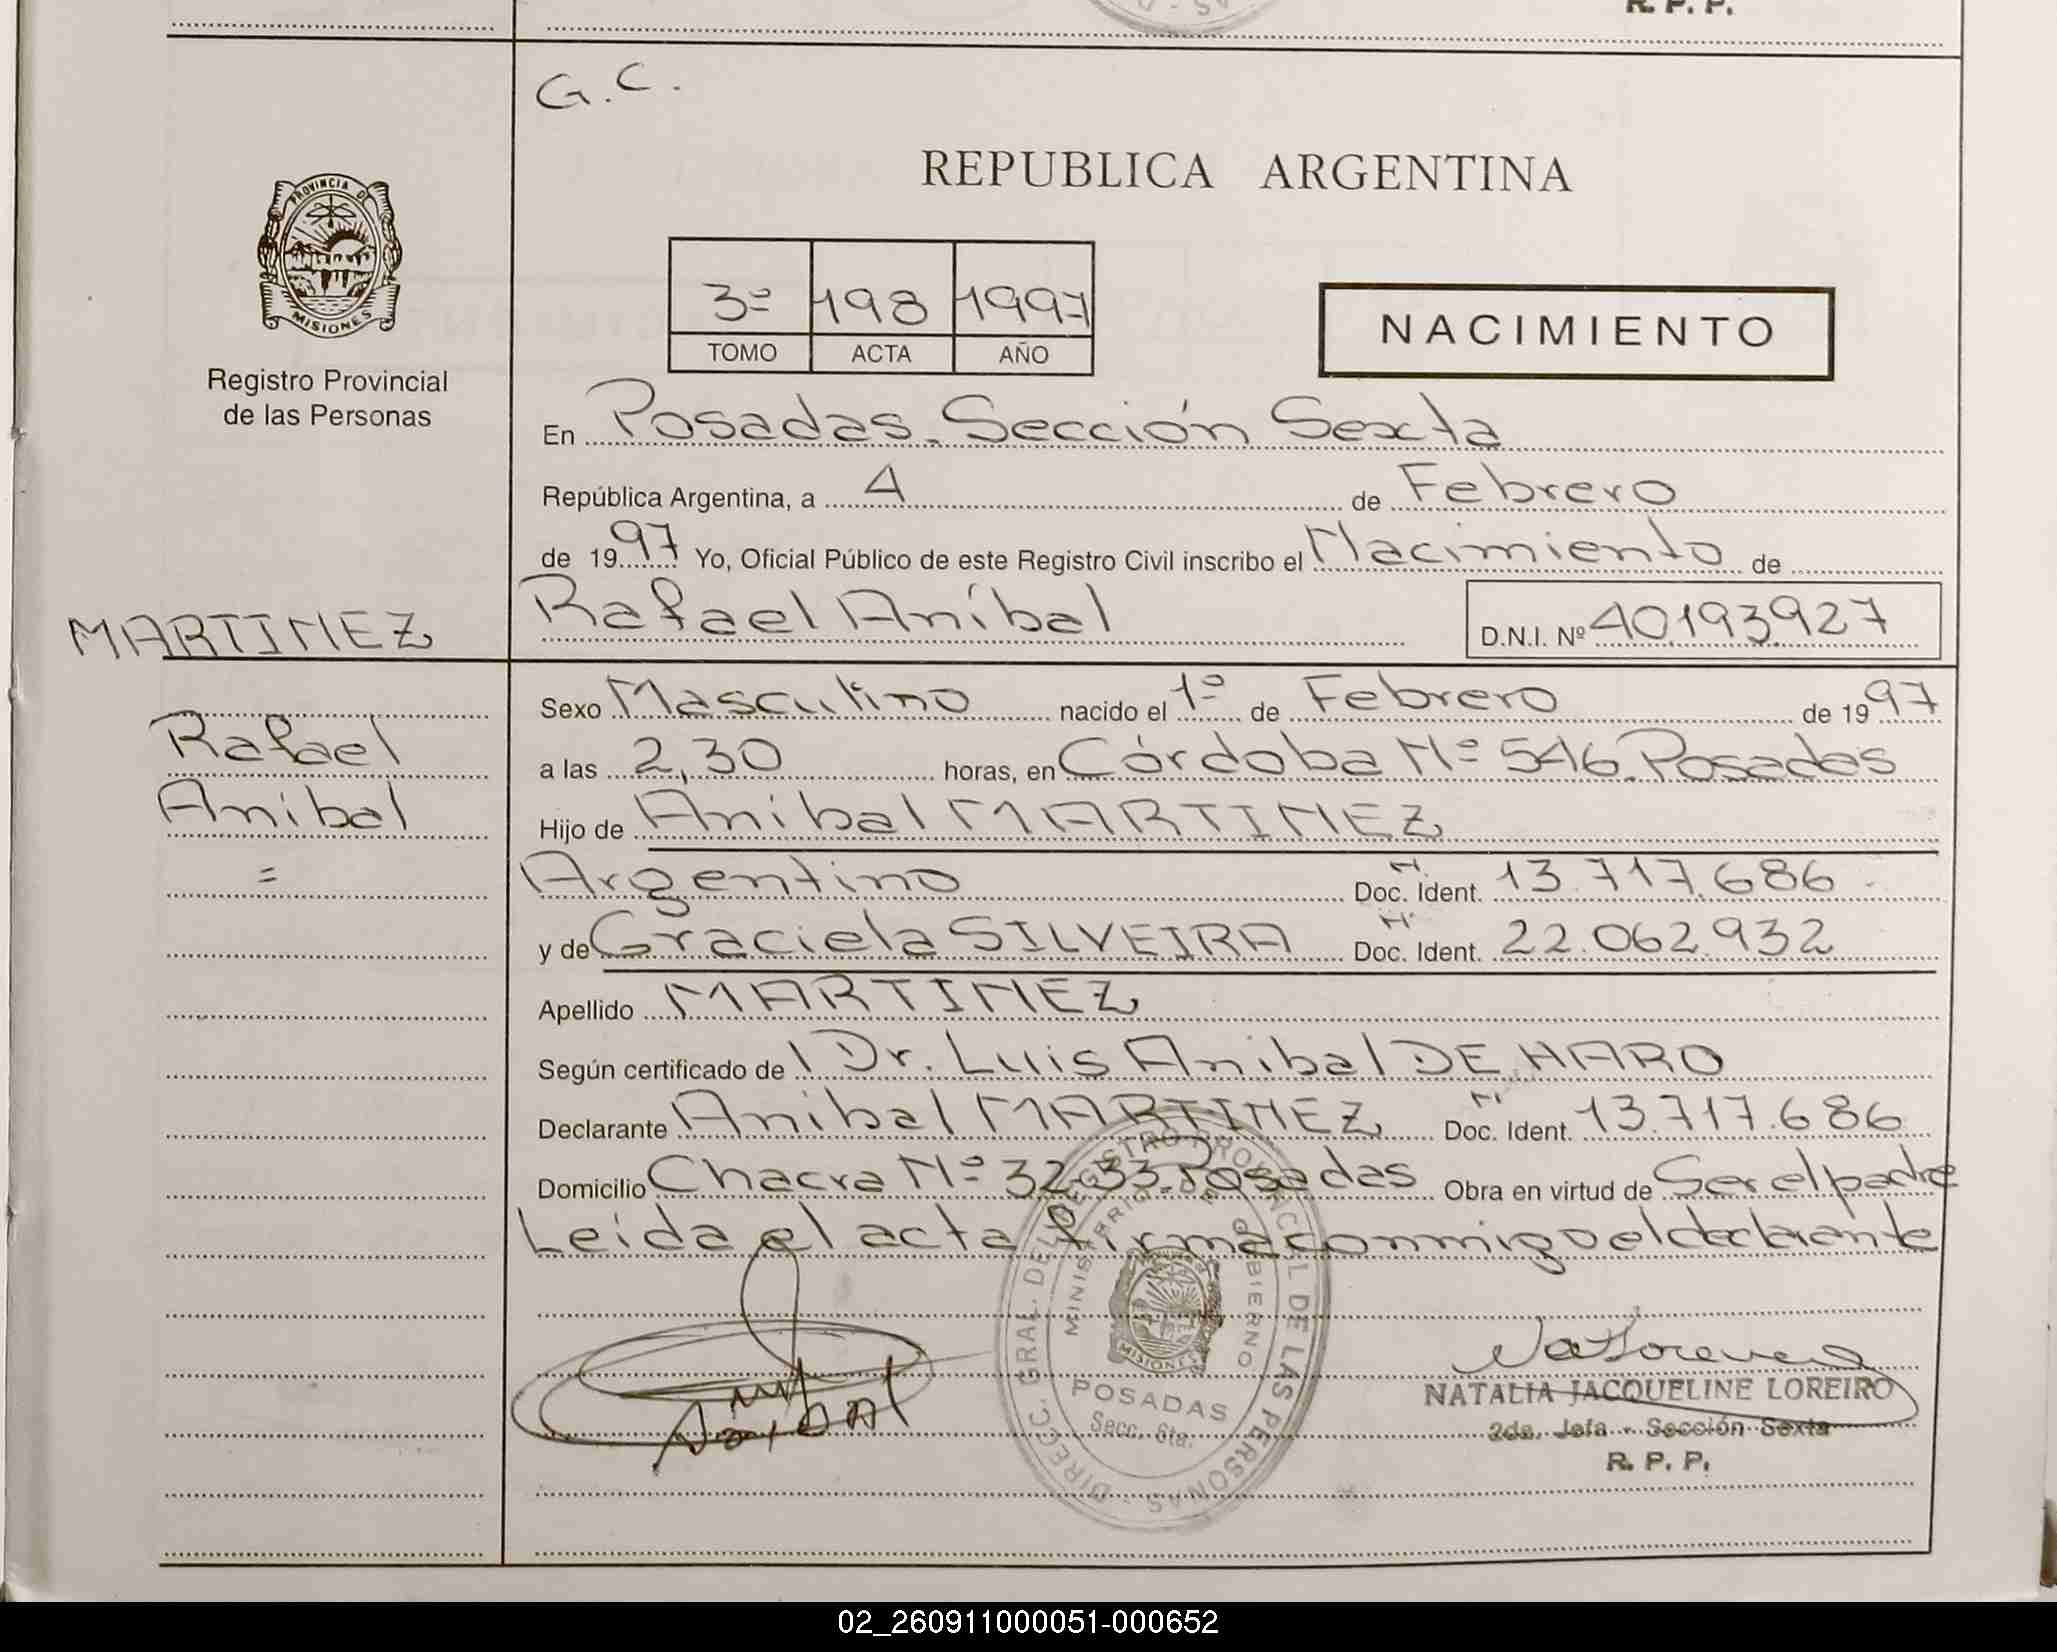 R. P. P.
G.C.
REPUBLICA ARGENTINA
PROVINCIA DE
MISIONES
Registro Provincial
de las Personas
3º 198 1997
TOMO ACTA AÑO
NACIMIENTO
En Posadas. Sección Sexta
República Argentina, a 4 de Febrero
de 1997 Yo, Oficial Público de este Registro Civil inscribo el Nacimiento de
MARTINEZ
Rafael Aníbal
D.N.I. Nº 40.193.927
Rafael
Aníbal
=
Sexo Masculino nacido el 1º de Febrero de 1997
a las 2,30 horas, en Córdoba Nº 546. Posadas
Hijo de Aníbal MARTINEZ
Argentino Doc. Ident. 13.717.686
y de Graciela SILVEIRA Doc. Ident. 22.062.932
Apellido MARTINEZ
Según certificado de l Dr. Luis Anibal DE HARO
Declarante Anibal MARTINEZ Doc. Ident. 13.717.686
Domicilio Chacra Nº 32-33. Posadas Obra en virtud de Ser el padre
Leída el acta firma conmigo el declarante
DIRECC. GRAL. DEL REGISTRO PROVINCIAL DE LAS PERSONAS
MINISTERIO DE GOBIERNO
MISIONES
POSADAS
Secc. 6ta.
NATALIA JACQUELINE LOREIRO
2da. Jefa - Sección Sexta
R. P. P.
02_260911000051-000652